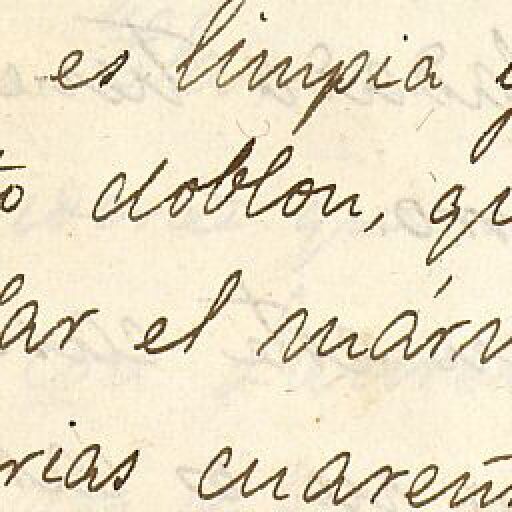 es limpia y
to doblon, qu
lar el márm
rias cuaren